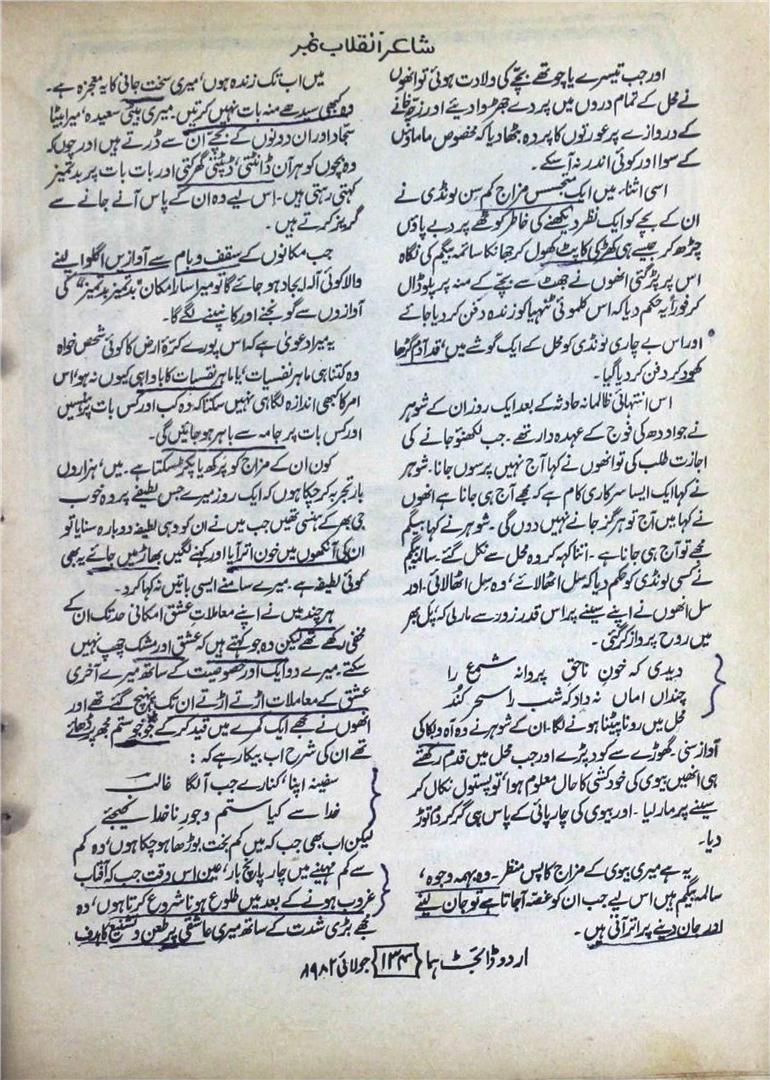 شاعر انقلاب نمبر
اور جب تیسرے یا چوتھے بچّے کی ولادت ہوئی تو انھوں
نے محل کے تمام دروں میں پردے چھڑوا دیئے اور زچّہ خانے
کے دروازے پر عورتوں کا پردہ بٹھا دیا کہ مخصوص ماماؤں
کے سوا اور کوئی اندر نہ آ سکے۔
اسی اثناء میں ایک متجسس مزاج کم سن لونڈی نے
ان کے بچّے کو ایک نظر دیکھنے کی خاطر کوٹھے پر دبے پاؤں
چڑھ کر جیسے ہی کھڑکی کا پٹ کھول کر جھانکا سالمہ بیگم کی نگاہ
اس پر پڑ گئی انھوں نے جھٹ سے بچّے کے منہ پر پلو ڈال
کر فوراً یہ حکم دیا کہ اس کلموئی ننہیا کو زندہ دفن کر دیا جائے
اور اس بے چاری لونڈی کو محل کے ایک گوشے میں، قد آدم گڑھا
کھود کر دفن کر دیا گیا۔
اس انتہائی ظالمانہ حادثہ کے بعد ایک روز ان کے شوہر
نے جو اودھ کی فوج کے عہدہ دار تھے۔ جب لکھنؤ جانے کی
اجازت طلب کی تو انھوں نے کہا آج نہیں پرسوں جانا۔ شوہر
نے کہا ایک ایسا سرکاری کام ہے کہ مجھے آج ہی جانا ہے انھوں
نے کہا میں آج تو ہرگز جانے نہیں دوں گی۔ شوہر نے کہا، بیگم
مجھے تو آج ہی جانا ہے۔ اتنا کہہ کر وہ محل سے نکل گئے۔ سالمہ بیگم
نے کسی لونڈی کو حکم دیا کہ سل اٹھا لائے، وہ سل اٹھا لائی۔ اور
سل انھوں نے اپنے سینے پر اس قدر زور سے مار لی کہ، پل بھر
میں روح پرواز کر گئی۔
دیدی کہ خونِ ناحق پروانہ شمع را
چنداں اماں نہ داد کہ شب را سحر کند
محل میں رونا پیٹنا ہونے لگا۔ ان کے شوہر نے وہ آہ و بکا کی
آواز سنی۔ گھوڑے سے کود پڑے اور جب محل میں قدم رکھتے
ہی انھیں بیوی کی خودکشی کا حال معلوم ہوا، تو پستول نکال کر
سینے پر مار لیا۔ اور بیوی کی چارپائی کے پاس ہی گر کر دم توڑ
دیا۔
یہ ہے میری بیوی کے مزاج کا پس منظر۔ وہ بہمہ وجوہ،
سالمہ بیگم ہیں اس لیے جب ان کو غصّہ آ جاتا ہے تو جان لینے
اور جان دینے پر اتر آتی ہیں۔
میں اب تک زندہ ہوں، میری سخت جانی کا یہ معجزہ ہے۔
وہ کبھی سیدھے منہ بات نہیں کرتیں۔ میری بیٹی سعیدہ، میرا بیٹا
سجاد اور ان دونوں کے بچّے ان سے ڈرتے ہیں اور چوں کہ
وہ بچوں کو ہر آن ڈانٹتی، ڈپٹتی گھرکتی اور بات بات پر بدتمیز
کہتی رہتی ہیں۔ اس لیے وہ ان کے پاس آنے جانے سے
گریز کرتے ہیں۔
جب مکانوں کے سقف و بام سے آوازیں اگلوا لینے
والا کوئی آلہ ایجاد ہو جائے گا تو میرا سارا مکان "بدتمیز بدتمیز" کی
آوازوں سے گونجنے اور کانپنے لگے گا۔
یہ میرا دعویٰ ہے کہ اس پورے کرّۂ ارض کا کوئی شخص خواہ
وہ کتنا ہی ماہر نفسیات، یا ماہر نفسیات کا باوا ہی کیوں نہ ہو، اس
امر کا کبھی اندازہ لگا ہی نہیں سکتا کہ وہ کب اور کس بات پر ہنسیں
اور کس بات پر جامہ سے باہر ہو جائیں گی۔
کون ان کے مزاج کو پرکھ یا پکڑ سکتا ہے۔ میں، ہزاروں
بار تجربہ کر چکا ہوں کہ ایک روز میرے جس لطیفے پر وہ خوب
جی بھر کے ہنسی تھیں جب میں نے ان کو وہی لطیفہ دوبارہ سنایا تو
ان کی آنکھوں میں خون اتر آیا اور کہنے لگیں بھاڑ میں جائے یہ بھی
کوئی لطیفہ ہے۔ میرے سامنے ایسی باتیں نہ کہا کرو۔
ہر چند میں نے اپنے معاملاتِ عشق امکانی حد تک ان کے
مخفی رکھے تھے لیکن وہ جو کہتے ہیں کہ عشق اور مشک چھپ نہیں
سکتے۔ میرے دو ایک اور خصوصیت کے ساتھ میرے آخری
عشق کے معاملات اڑتے اڑتے ان تک پہنچ گئے تھے اور
انھوں نے مجھے ایک کمرے میں قید کر کے جو جو ستم مجھ پر ڈھائے
تھے ان کی شرح اب بیکار ہے کہ:
سفینہ اپنا، کنارے جب آ لگا غالب
خدا سے کیا ستم و جورِ ناخدا کہیئے
لیکن اب بھی جب کہ میں کم بخت بوڑھا ہو چکا ہوں، وہ کم
سے کم مہینے میں چار پانچ بار، عین اس وقت جب کہ آفتاب
غروب ہونے کے بعد میں طلوع ہونا شروع کرتا ہوں، وہ
مجھے بڑی شدت کے ساتھ میری عاشقی پر طعن و تشنیع کا ہدف
اردو ڈائجسٹ ہما {۱۳۴} جولائی ۱۹۸۲ء